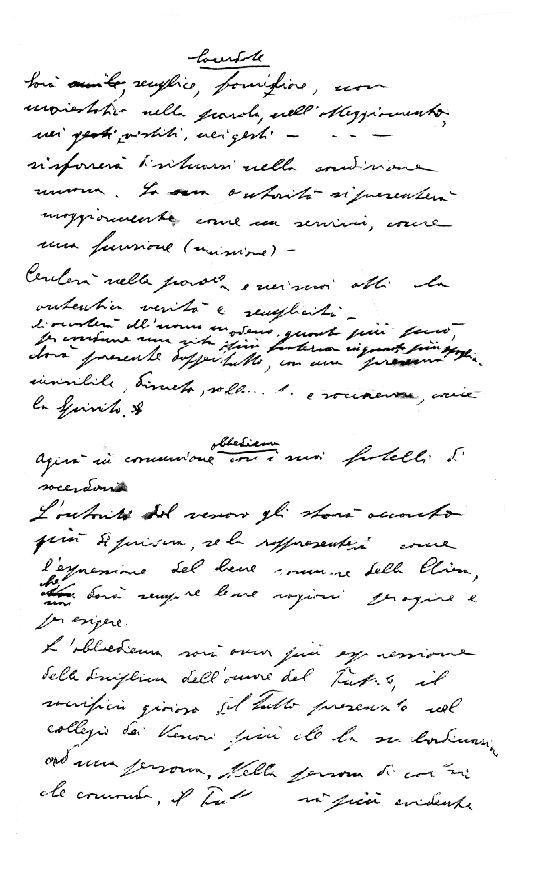 Sacerdote
Sarà umile, semplice, famigliare, non
maiestatico nella parola, nell'atteggiamento,
nei gesti, vestiti, nei gesti - - - -
si sforzerà di situarsi nella condizione
umana. La sua autorità si presenterà
maggiormente come un servizio, come
una funzione (missione) -
nella parola e nei suoi atti la
autentica verità e semplicità -
all'uomo moderno quanto più può,
per condurre una vita più
sarà presente dappertutto, con una presenza
invisibile, discreta, come
lo Spirito.
obbedienza
Agirà in comunione con i suoi fratelli di
sacerdozio
L'autorità del vescovo gli starà accanto
più di prima, se la rappresenterà come
l'espressione del bene comune della Chiesa,
che non darà sempre le sue ragioni per agire e
per esigere.
L'obbedienza sarà ancor più espressione
della disciplina dell'amore del Tutto, il
sacrificio gioioso del Tutto presenziato nel
collegio dei Vescovi più che la subordinazione
ad una persona. Nella persona di colui
che comanda, il Tutto sarà più evidente